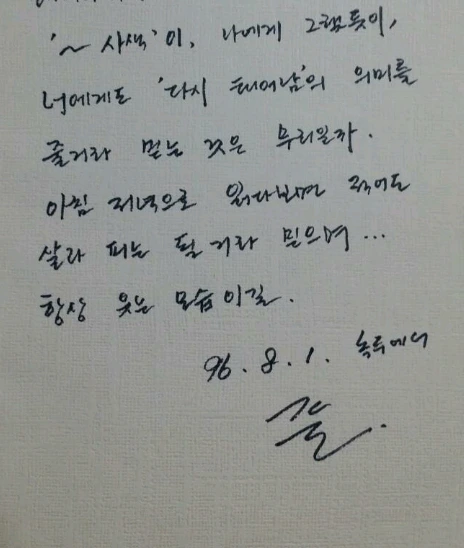 '~ 사색'이, 나에게 그랬듯이,
너에게도 '다시 태어남'의 의미를
줄거라 믿는 것은 무리일까.
아침 저녁으로 읽다보면 적어도
살과 피는 될 거라 믿으며...
항상 웃는 모습이길.
96. 8. 1. 녹두에서